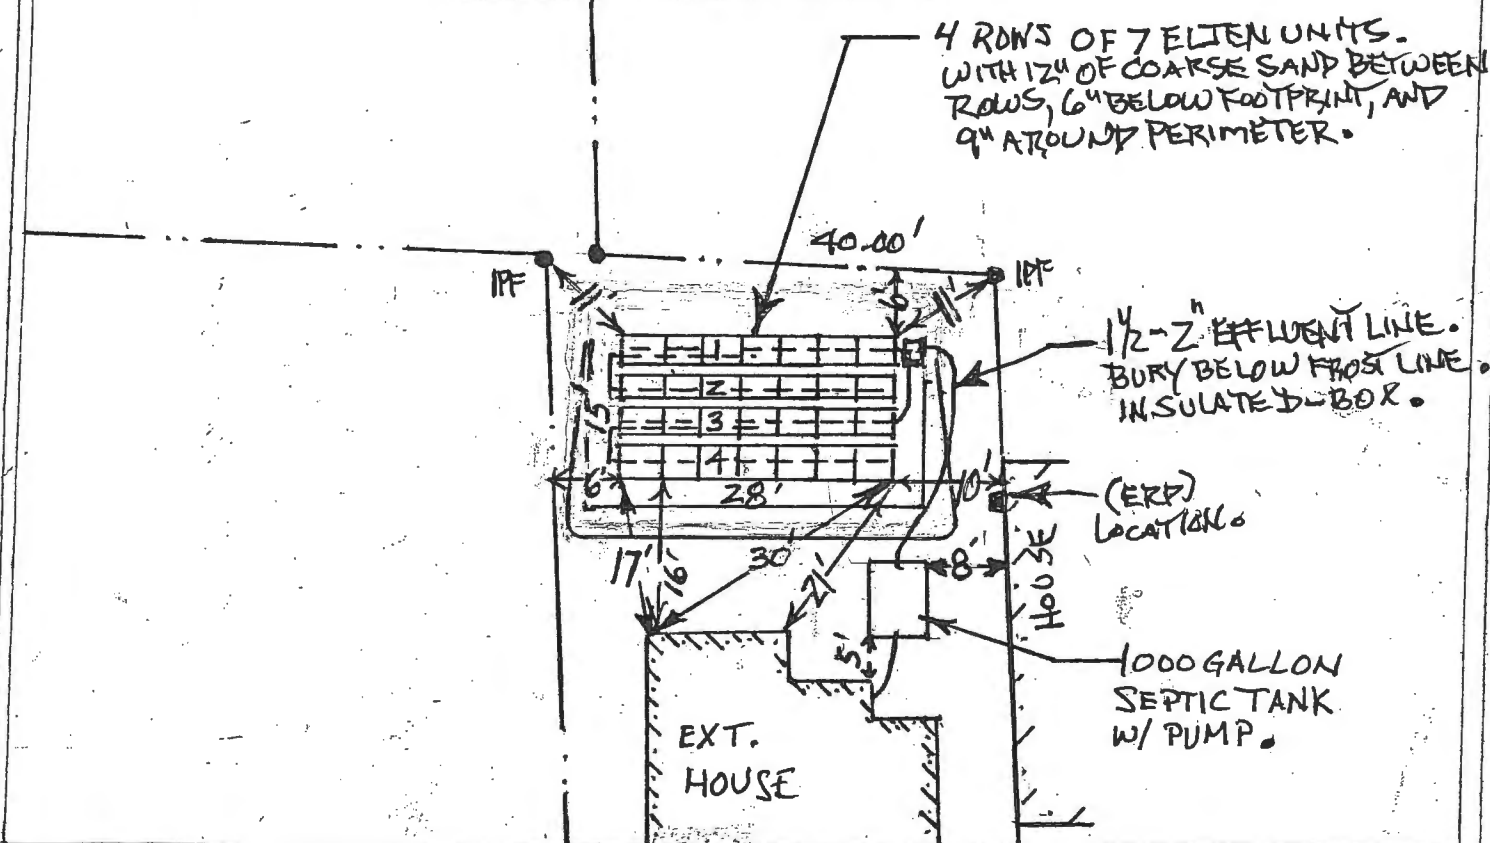 4 ROWS OF 7 ELJEN UNITS.
WITH 12" OF COARSE SAND BETWEEN
ROWS, 6" BELOW FOOTPRINT, AND
9" AROUND PERIMETER.
40.00'
IPF
IPF
11'
6'
11'
1½-2" EFFLUENT LINE.
BURY BELOW FROST LINE.
INSULATE D-BOX.
1
2
3
4
15'
6'
28'
10'
(ERP)
LOCATION.
17'
16'
30'
21'
8'
HOUSE
5'
1000 GALLON
SEPTIC TANK
W/ PUMP.
EXT.
HOUSE